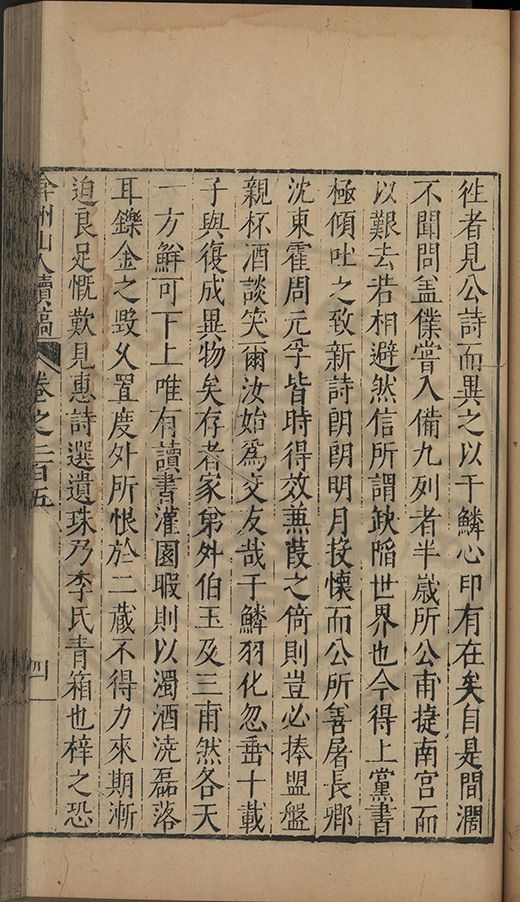 徃者見公詩而異之以于鱗心印有在矣自是間濶
不聞問盖僕嘗入備九列者半嵗所公甫捷南宮而
以艱去若相避然信所謂缺陷世界也今得上黨書
極傾吐之致新詩朗朗明月投懷而公所善屠長卿
沈東霍周元孚皆時得效蒹葭之倚則豈必捧盟盤
親杯酒談笑爾汝始爲交友哉于鱗羽化忽垂十載
子與復成異物矣存者家弟外伯玉及三甫然各天
一方鮮可下上唯有讀書灌園暇則以濁酒澆磊落
耳鑠金之毀乆置度外所恨於二藏不得力來期漸
迫良足慨歎見惠詩選遺珠乃李氏青箱也梓之恐
弇州山人續稿
卷之二百五
四